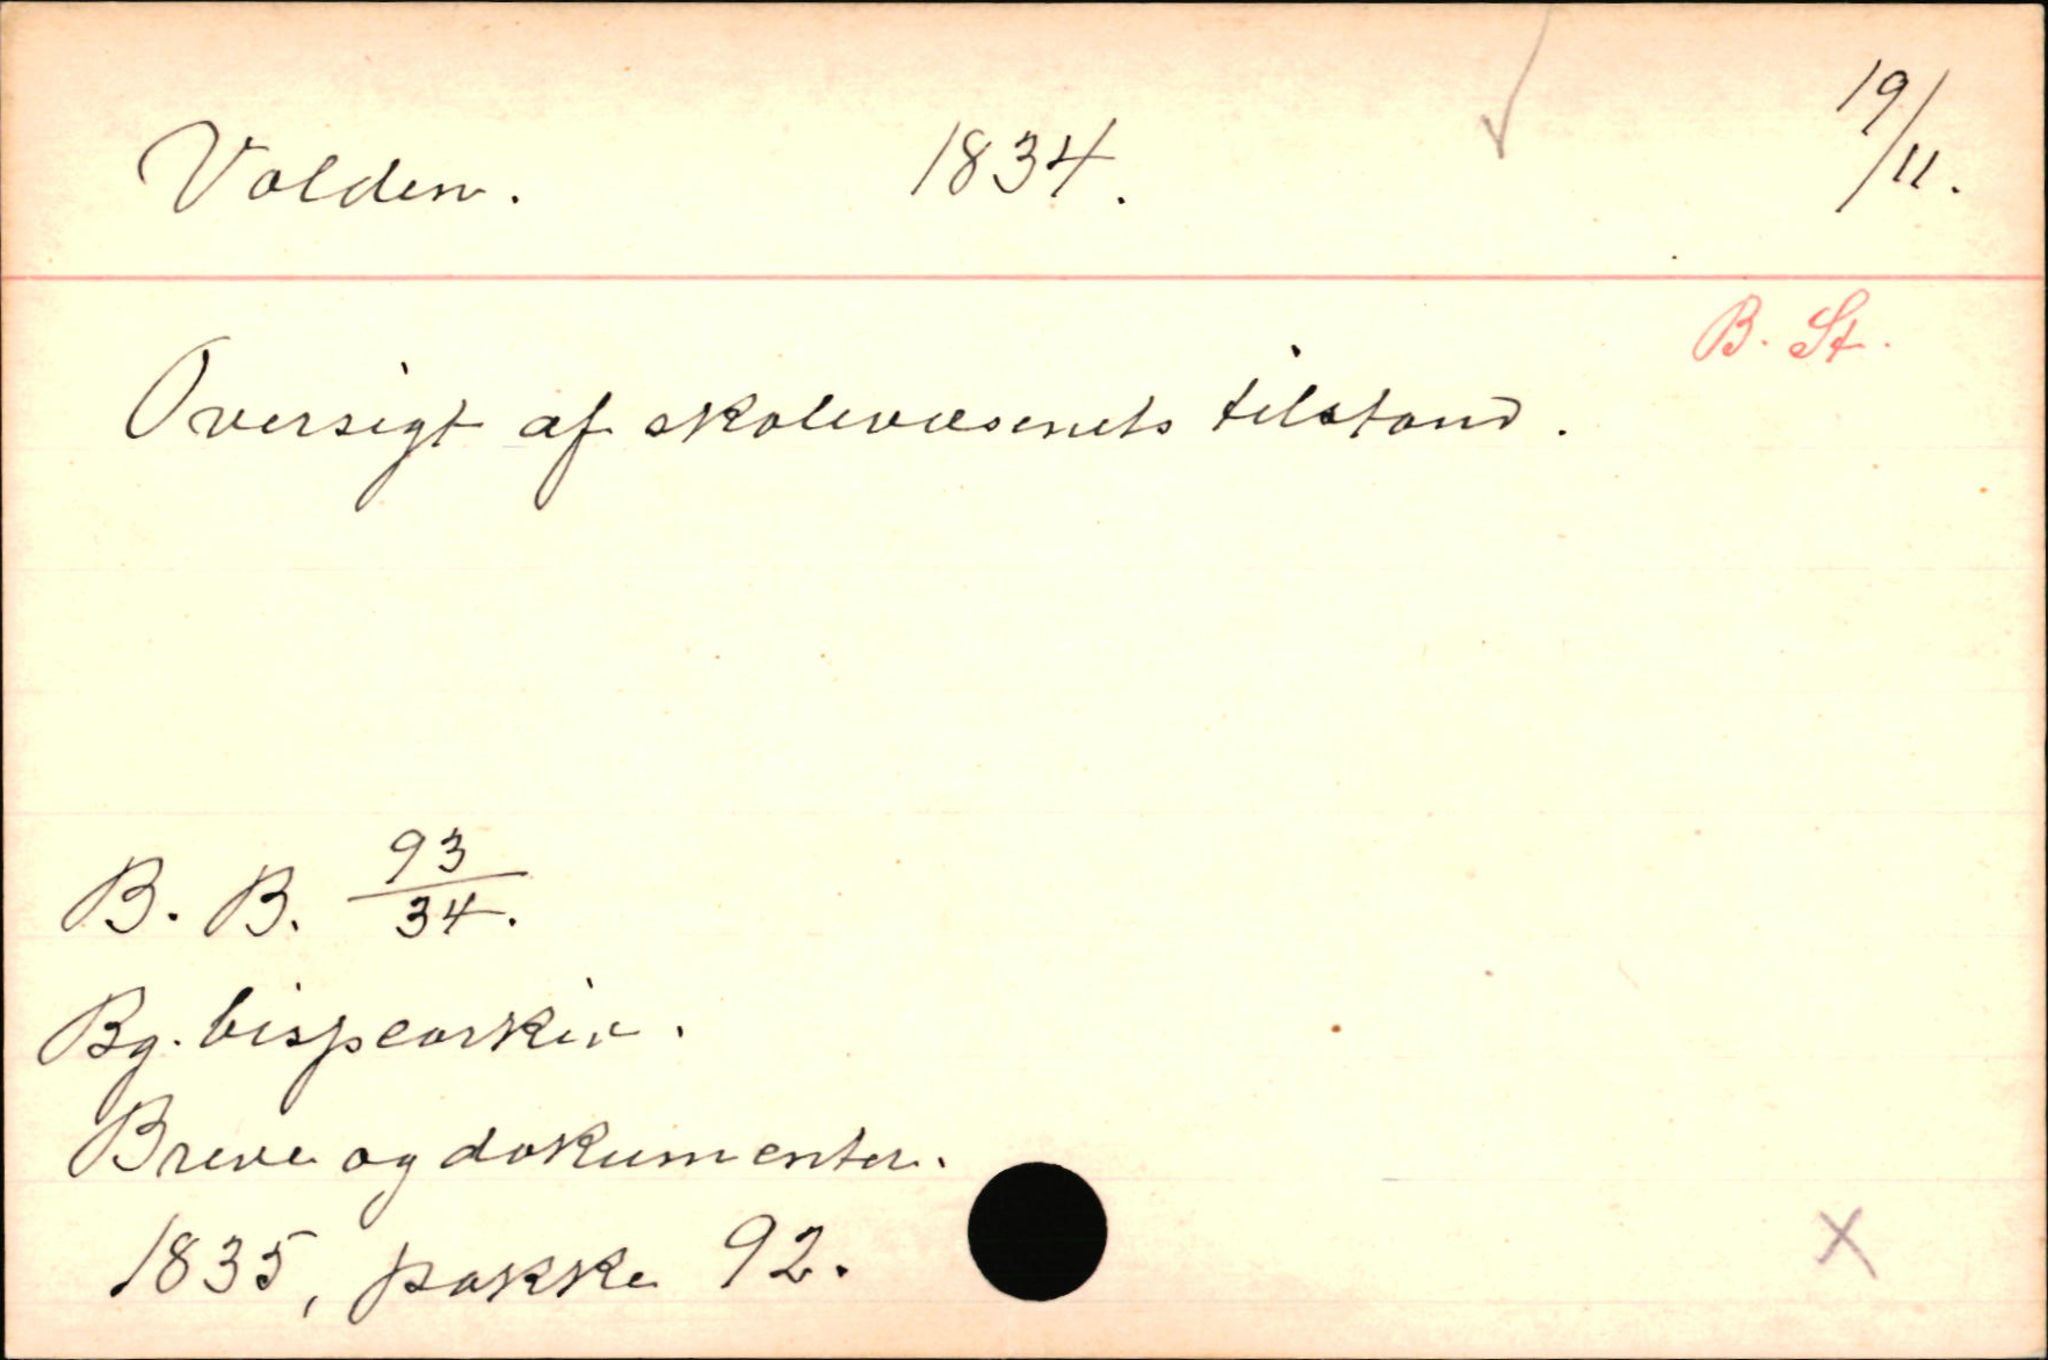 Volden. 1834. 19/11.
B. St.
Oversigt af skolevæsenets tilstand.
B. B. 93/34.
Bg. bispearkiv.
Breve og dokumenter.
1835, pakke 92.
X